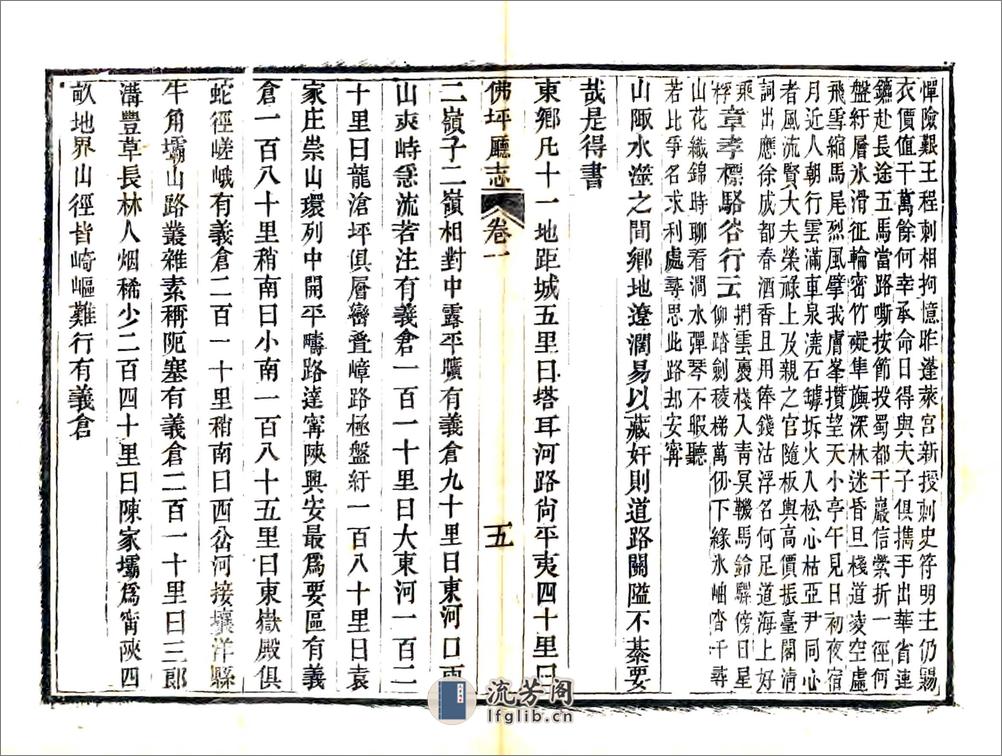 憚險艱王程刺相拘憶昨蓬萊宮新授刺史符明主仍賜
衣價值千萬餘何幸承命日得與夫子俱攜手出華省連
鑣赴長途五馬當路嘶按節投蜀都千巖信縈折一徑何
盤紆層氷滑征輪密竹礙隼旟深林迷昏旦棧道淩空虛
飛雪縮馬尾烈風擘我膚峯攢望天小亭午見日初夜宿
月近人朝行雲滿車泉澆石罅坼火入松心枯亞尹同心
者風流賢大夫榮祿上及親之官隨板輿高價振臺閣清
詞出應徐成都春酒香且用俸錢沽浮名何足道海上好
乘桴章孝標駱谷行云捫雲裊棧入青冥鞿馬鈴騾傍日星
仰踏劍稜梯萬仞下緣氷岫杳千尋
山花織錦時聊看澗水彈琴不暇聽
若比爭名求利處尋思此路却安寗
山陬水澨之間鄉地遼濶易以藏奸則道路關隘不綦要
哉是得書
東鄉凡十一地距城五里曰塔耳河路尚平夷四十里曰
佛坪廳志 卷一 五
二嶺子二嶺相對中露平曠有義倉九十里曰東河口兩
山夾峙急流若注有義倉一百一十里曰大東河一百二
十里曰龍滄坪俱層巒疊嶂路極盤紆一百八十里曰袁
家庄崇山環列中開平疇路達甯陝興安最爲要區有義
倉一百八十里稍南曰小南一百八十五里曰東嶽殿俱
蛇徑嵯峨有義倉二百一十里稍南曰西岔河接壤洋縣
牛角壩山路叢雜素稱阨塞有義倉二百一十里曰三郎
溝豐草長林人烟稀少二百四十里曰陳家壩爲甯陝四
畝地界山徑皆崎嶇難行有義倉
流芳閣
lfglib.cn